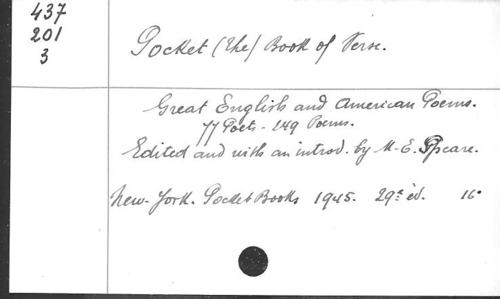 437
201
3
Pocket (The) Book of Verse.
Great English and American Poems.
77 Poets - 149 Poems.
Edited and with an introd. by M. E. Speare.
New-York. Pocket Books 1945. 29e éd. 16°